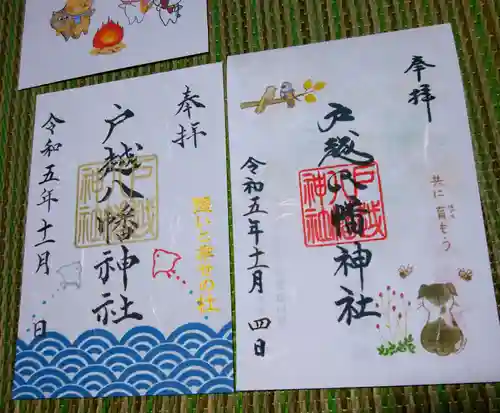 奉拝
戸越八幡神社
戸越八幡神社
令和五年十一月
日
奉拝
戸越八幡神社
戸越八幡神社
令和五年十一月
四日
共に育もう
はぐく